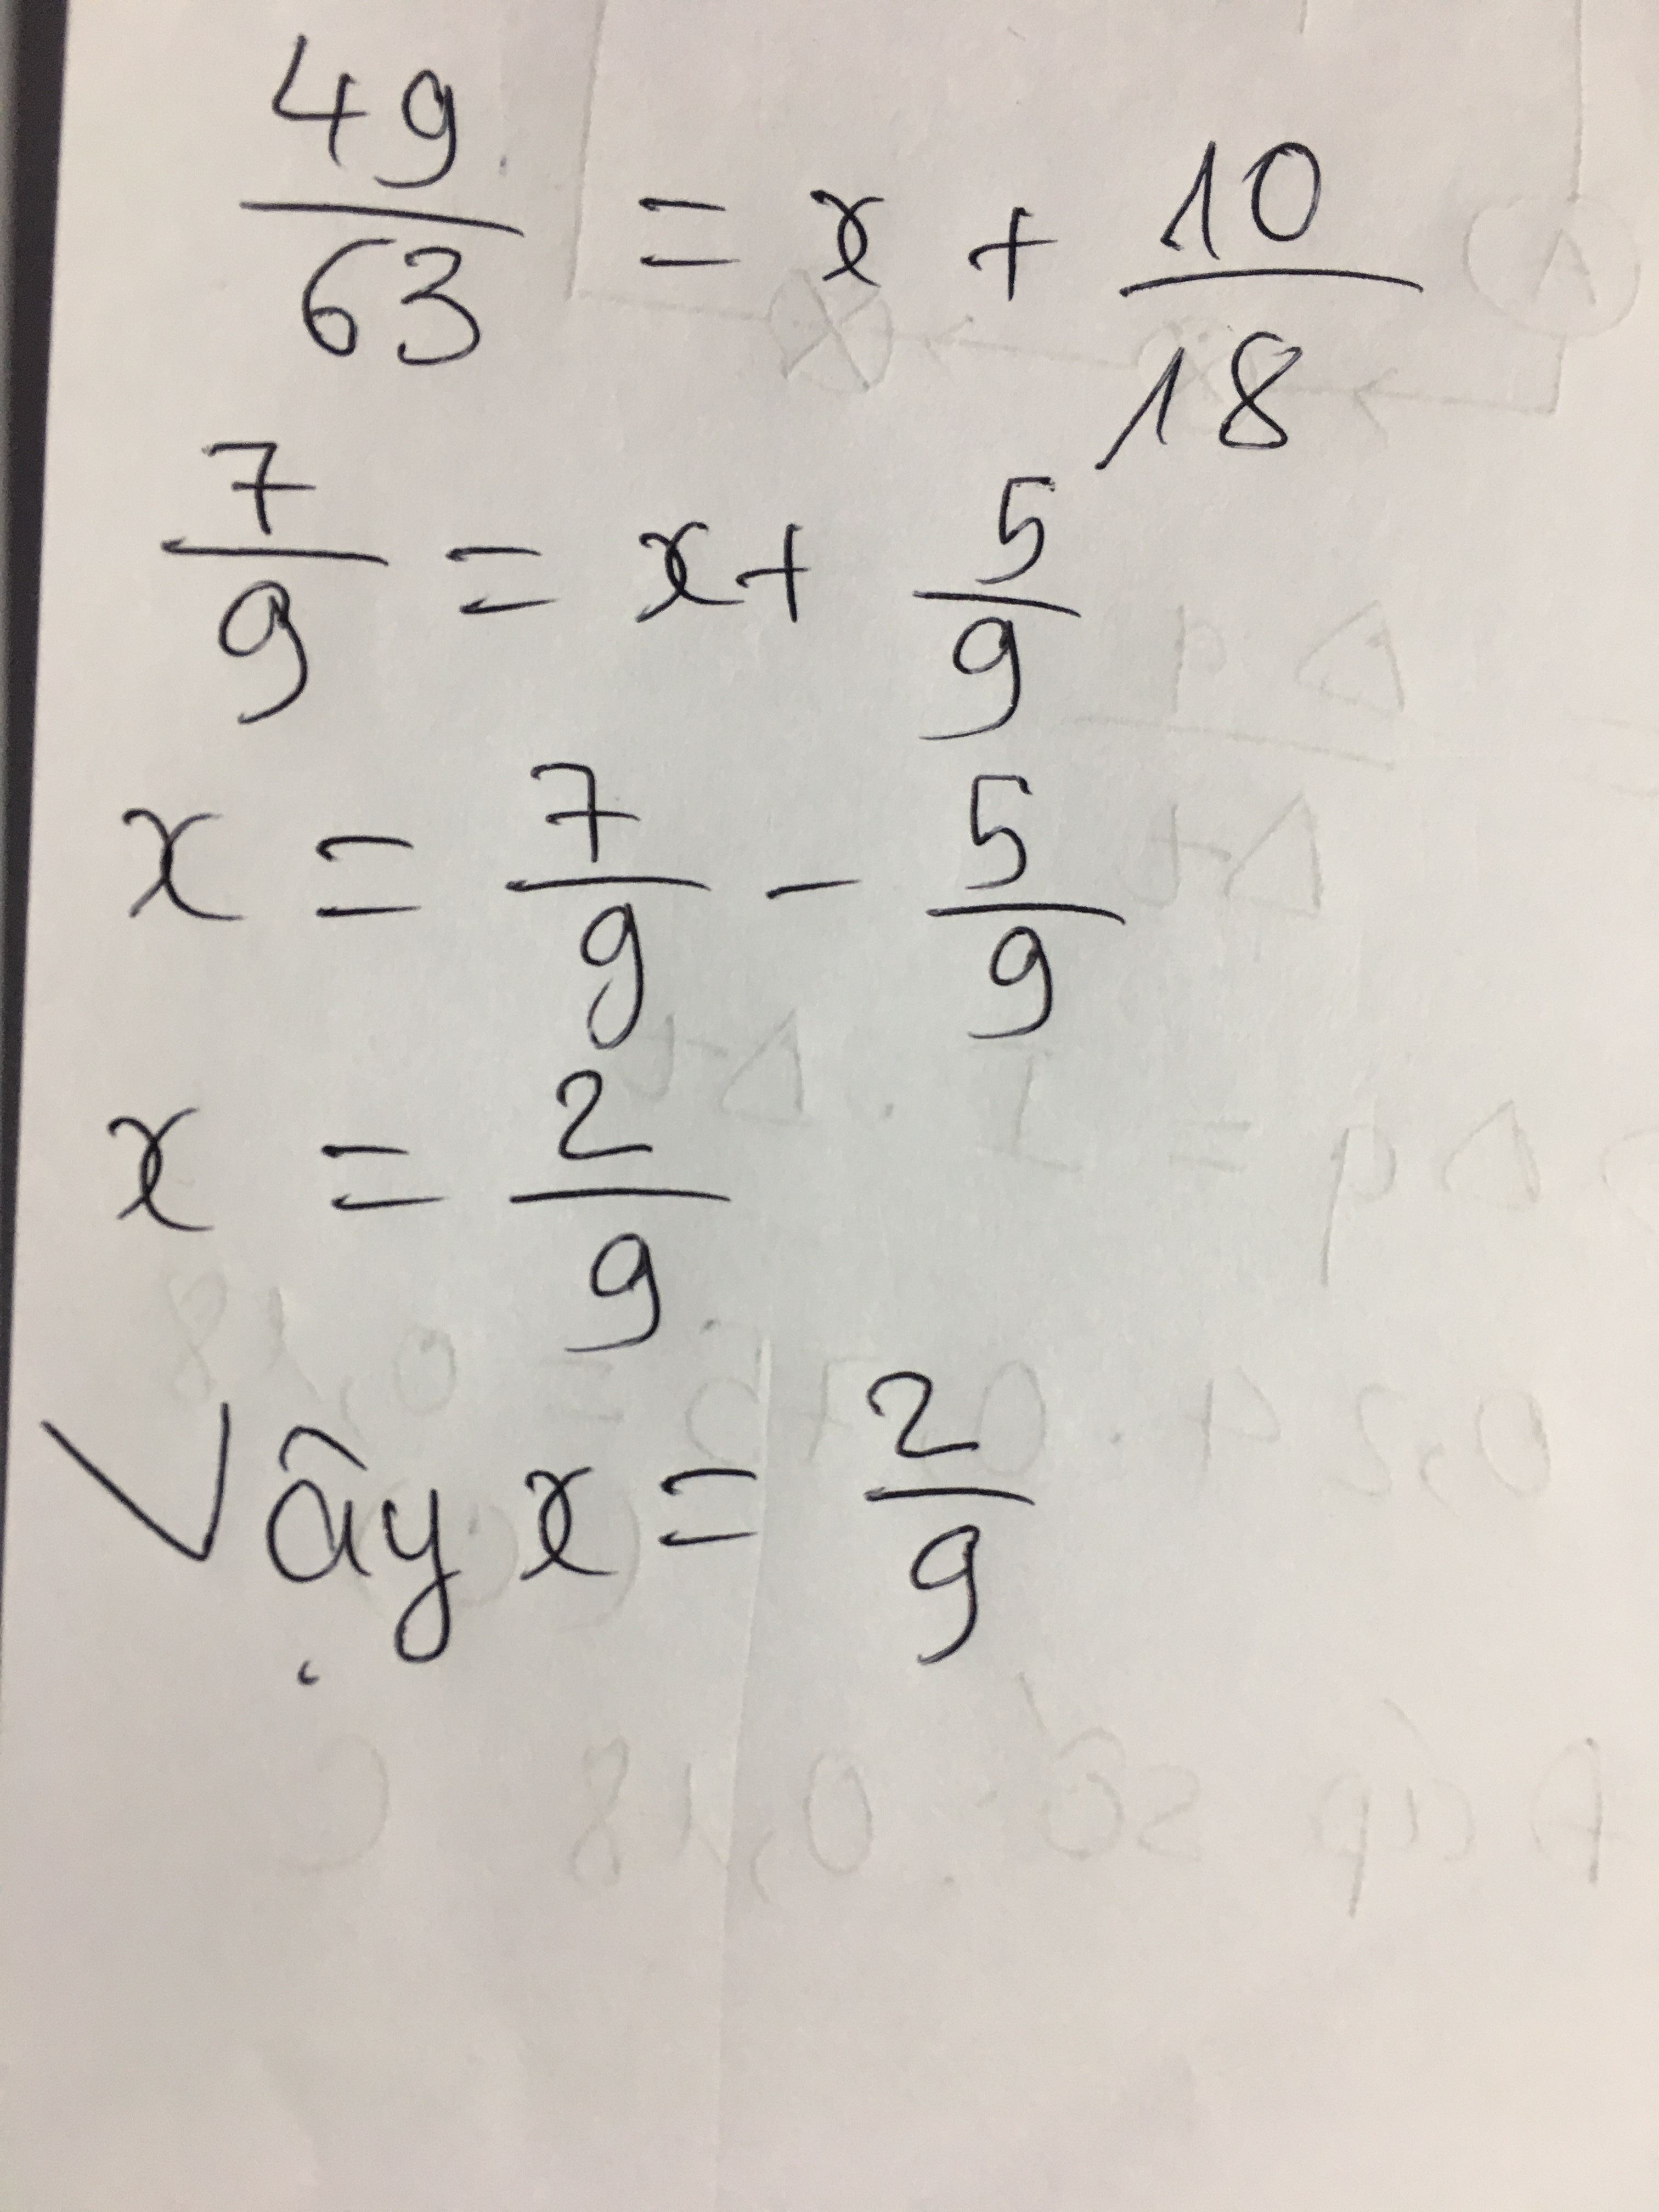 49/63 = x + 10/18
7/9 = x + 5/9
x = 7/9 - 5/9
x = 2/9
Vậy x = 2/9